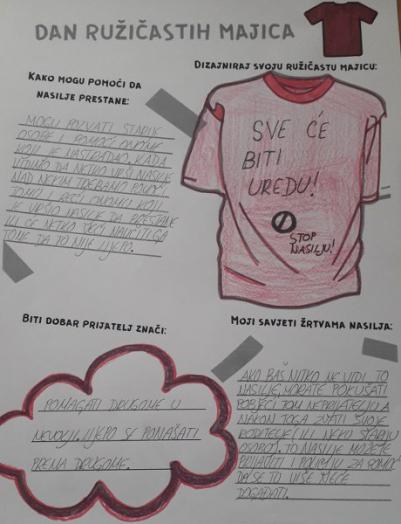 DAN RUŽIČASTIH MAJICA
KAKO MOGU POMOĆI DA
NASILJE PRESTANE:
MOGU POZVATI STARIJE
OSOBE I POMOĆI ONOME
KOJI JE NASTRADAO. KADA
VIDIMO DA NETKO VRŠI NASILJE
NAD NEKIM TREBAMO POMOĆI
TOME I REĆI ONOME KOJI
JE VRŠIO NASILJE DA PRESTANE
ILI ĆE NETKO TREĆI NAUČITI GA
TOME DA TO NIJE LIJEPO.
DIZAJNIRAJ SVOJU RUŽIČASTU MAJICU:
SVE ĆE
BITI
UREDU!
STOP
NASILJU!
BITI DOBAR PRIJATELJ ZNAČI:
POMAGATI DRUGOME U
NEVOLJI. LIJEPO SE PONAŠATI
PREMA DRUGOME.
MOJI SAVJETI ŽRTVAMA NASILJA:
AKO BAŠ NITKO NE VIDI TO
NASILJE, MORATE POKUŠATI
POBJEĆI TOM NEPRIJATELJU A
NAKON TOGA ZVATI SVOJE
RODITELJE ILI NEKU STARIJU
OSOBU. TO NASILJE MOŽETE
PRIJAVITI I POLICIJI ZA POMOĆ
DA SE TO VIŠE NEĆE
DOGAĐATI.